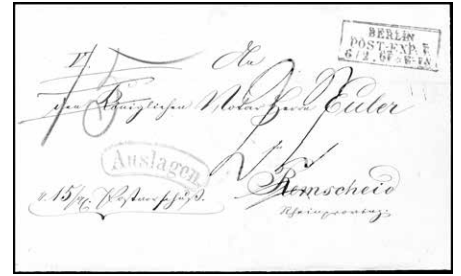 BERLIN
POST-EXP.
6/2 67
An
den Königlichen Notar Herrn Euler
Auslagen.
Remscheid
Rheinprovinz
v. 15 Postvorschuß.